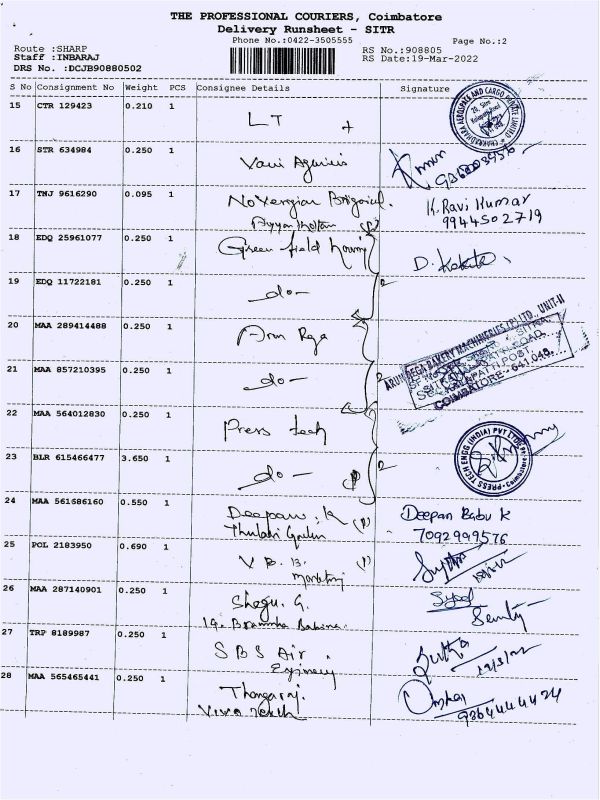 THE PROFESSIONAL COURIERS, Coimbatore
Delivery Runsheet - SITR
Phone No.:0422-3505555
Page No.:2
Route :SHARP
RS No.:908805
Staff :INBARAJ
RS Date:19-Mar-2022
DRS No. :DCJB90880502
S No Consignment No Weight PCS Consignee Details Signature
15 CTR 129423 0.210 1 LT
16 STR 634984 0.250 1 Vani
17 TNJ 9616290 0.095 1 K. Ravi Kumar
9944502719
18 EDQ 25961077 0.250 1 Green field
19 EDQ 11722181 0.250 1 -do-
20 MAA 289414488 0.250 1 Arun Rega
ARUN REGA BAKERY MACHINERIES (P) LTD., UNIT-II
COIMBATORE - 641 048.
21 MAA 857210395 0.250 1 -do-
22 MAA 564012830 0.250 1 Press tech
PRESS TECH ENGG (INDIA) PVT LTD
23 BLR 615466477 3.650 1 -do-
24 MAA 561686160 0.550 1 Deepan. K (P) Deepan Babu K
7092999576
25 POL 2183950 0.690 1 V B. B. (P)
26 MAA 287140901 0.250 1 G. Syed
27 TRP 8189987 0.250 1 SBS Air
19/3/22
28 MAA 565465441 0.250 1 Thangaraj.
9364444424